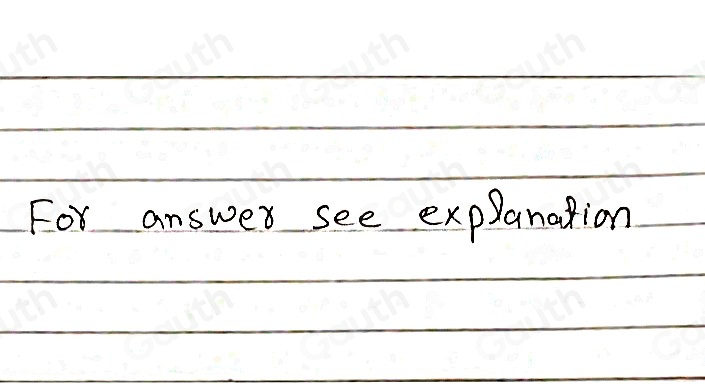 For answer see explanation